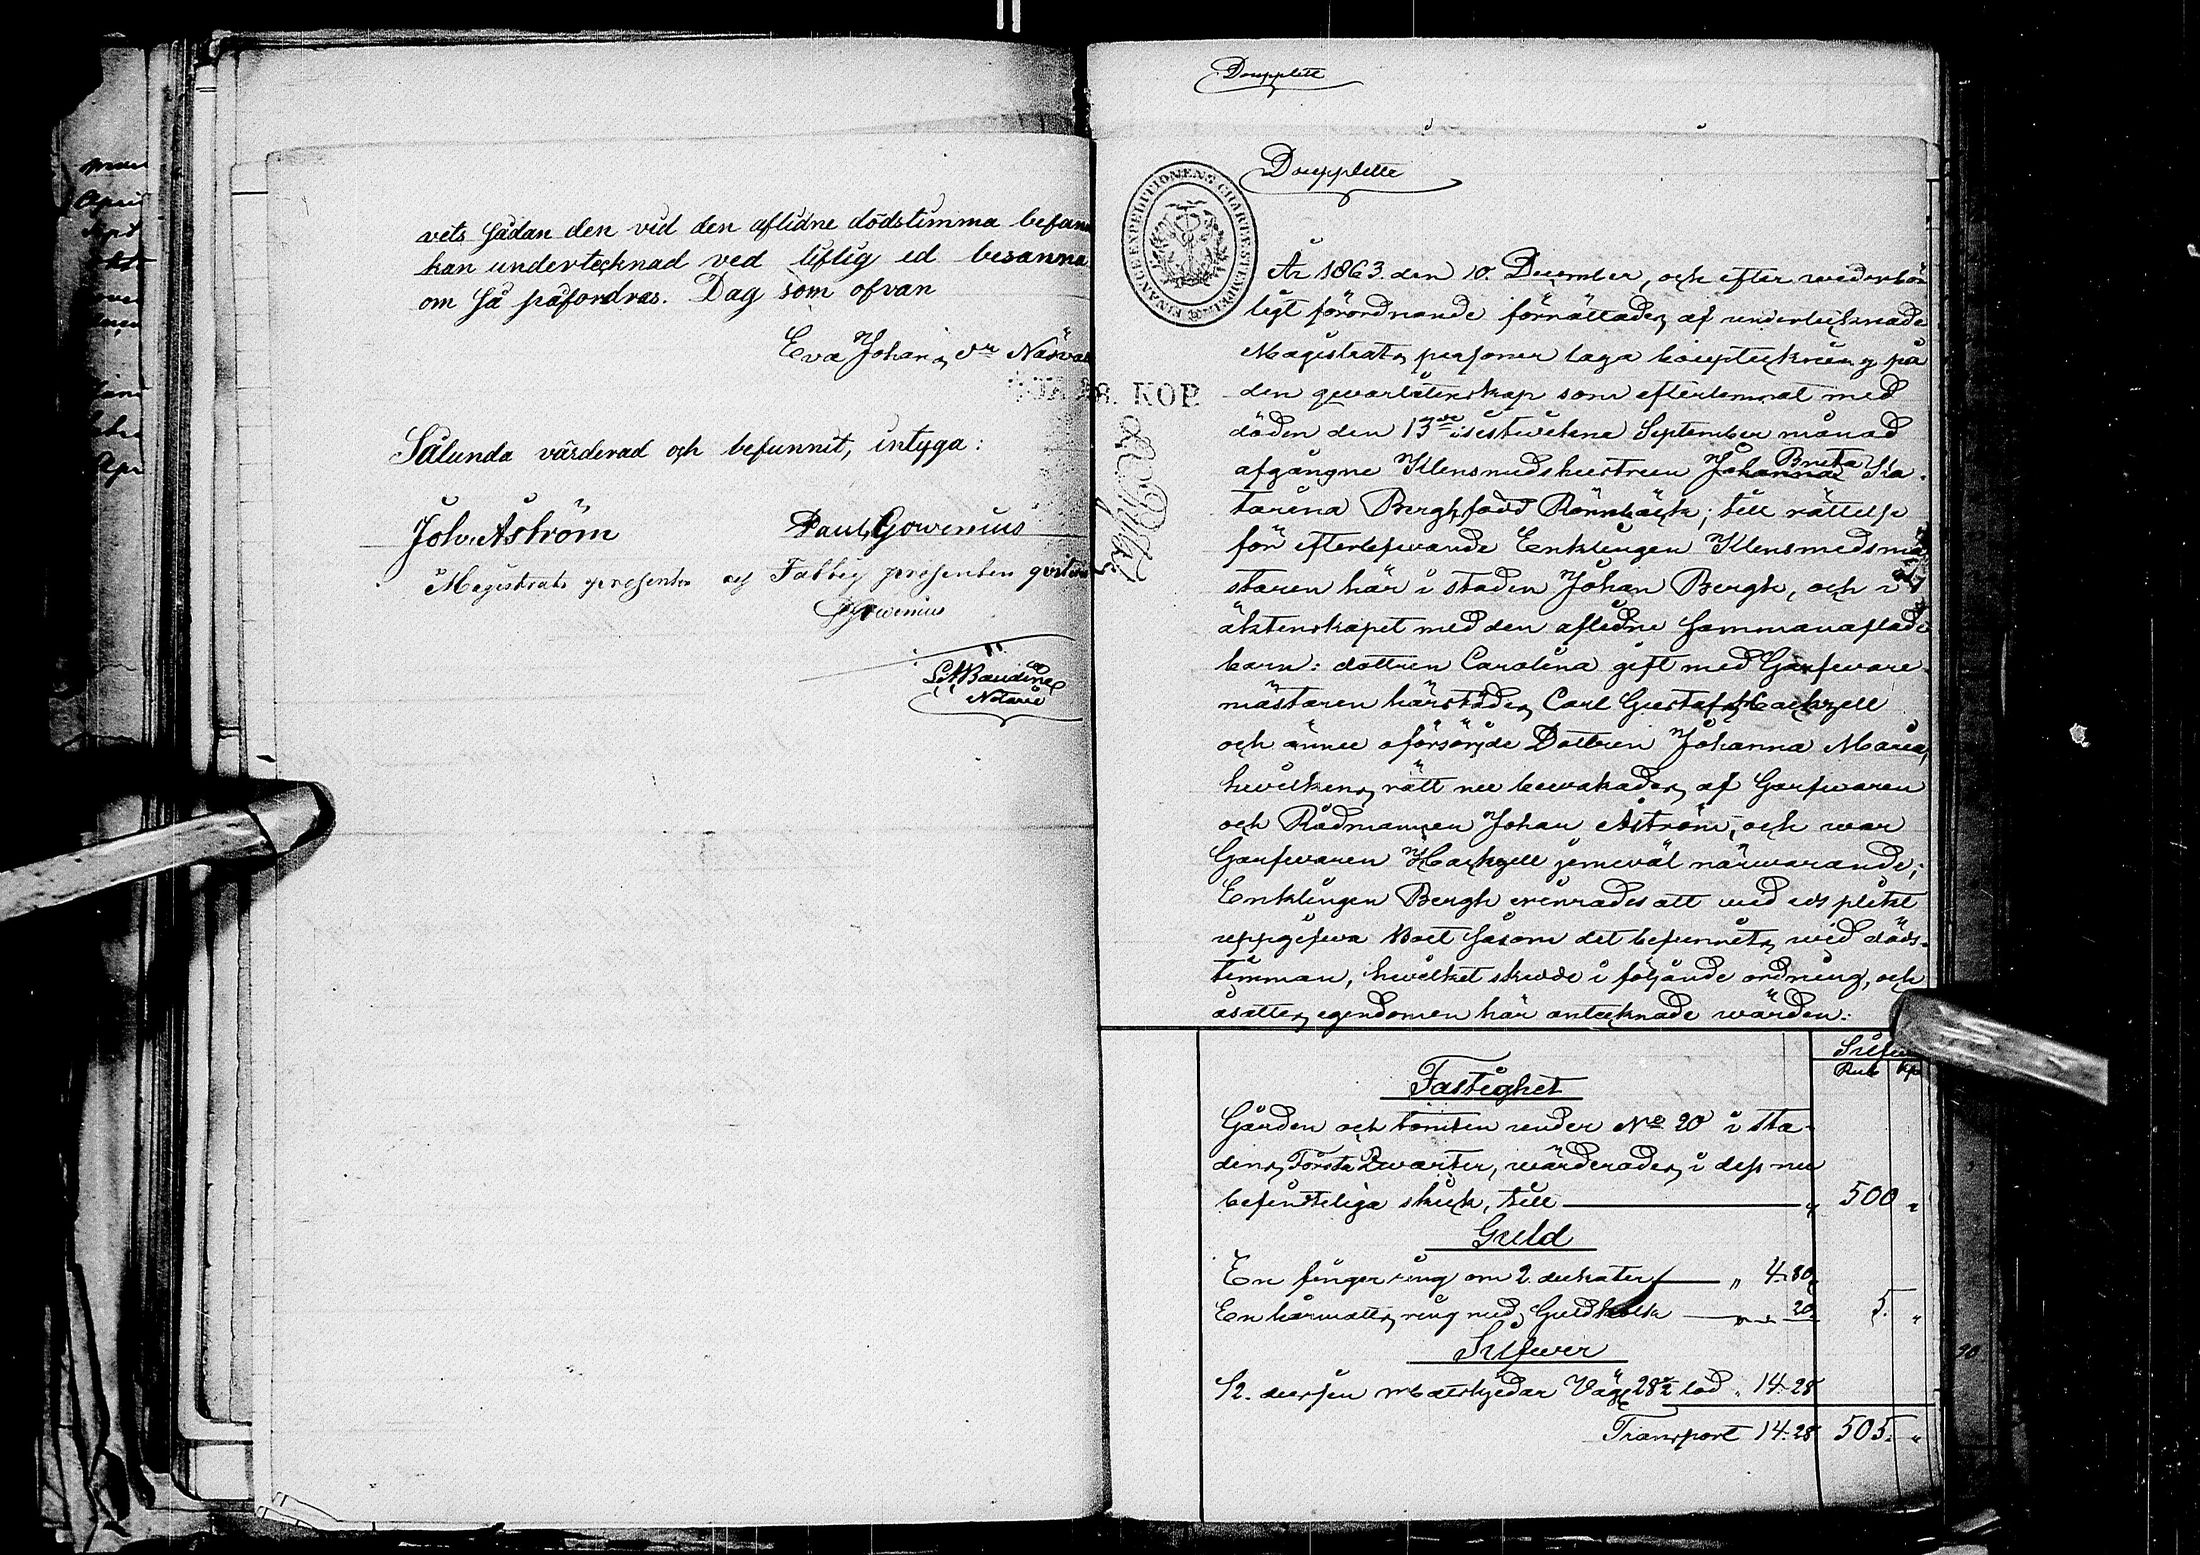 vets sådan den vid den aflidne dödstimma befann
kan undertecknad ved liflig ed besanna
om så påfordras. Dag som ofvan
Eva Johans dr
Sålunda värderad och befunnit, intyga:
Joh. Åström
Paul Gowenius
Magistrats
Gowenius
Notarie
Doupplett
Doupplette
FINANCE EXPEDITIONENS CHARTÆ STEMPEL
KOP.
År 1863. den 10. December, och efter wederbör
ligt förordnande förrättades af undertecknade
Magistrats personer laga bouptekning på
den qwarlåtenskap som efterlemnat med
döden den 13de sistwekne September månad
afgångne Klensmedshustrun Johanna Brita Ka-
tarina Bergh, född Rönnbäck; till rättelse
för efterlefwande Enklingen Klensmedsmä
staren här i staden Johan Bergh, och i
äktenskapet med den aflidne sammanaflade
barn: dottren Carolina gift med Garfware-
mästaren härstädes Carl Gustaf Hackzell
och ännu oförsörjde Dottren Johanna Maria,
hwilkens rätt nu bewakades af Garfwaren
och Rådmannen Johan Åström, och war
Garfwaren Hackzell jemväl närwarande;
Enklingen Bergh erinrades att wid eds plikt
uppgifwa Boet såsom det befunnits wid döds-
timman, hwilket skedde i följande ordning, och
åsattes egendomen här antecknade wärden:
Silfwer
Rub Kp
Fastighet
Gården och tomten under No 20 i sta-
dens Första Qwarter, wärderades i dess nu
befinteliga skick, till — " 500 "
Guld
En fingerring om 2 dukater — " 4.80
En hårmatts ring med Guldhake — " " 20. 5. "
Silfwer
12. matskjedar Väg 28½ lod " 14.28
Transport 14.28 505. "